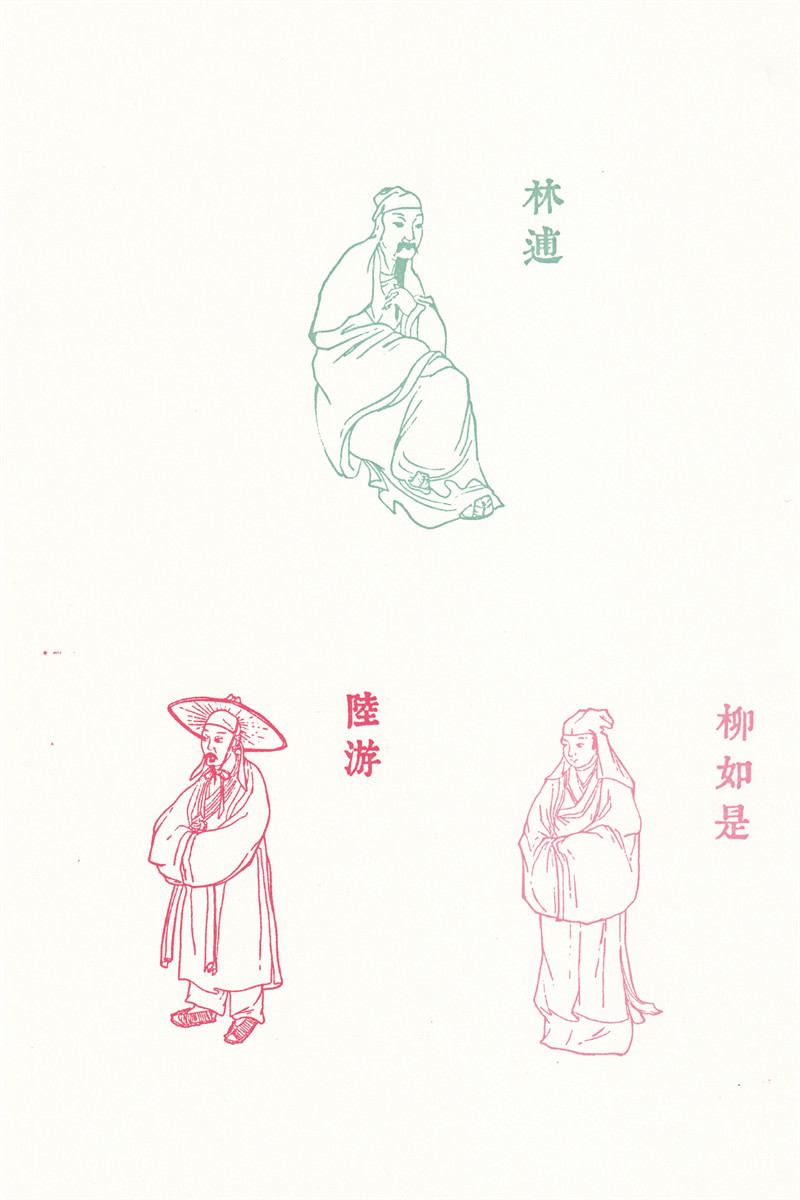 林逋
陸游
柳如是